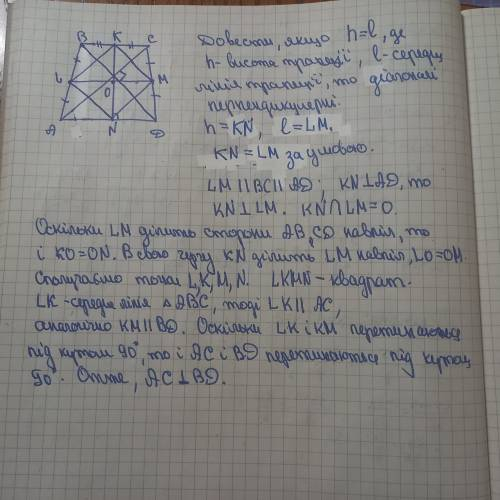 B K C
L O M
A N D
Довести, якщо h=l, де
h - висота трапеції, l - середня
лінія трапеції, то діагоналі
перпендикулярні.
h = KN, l = LM.
KN = LM за умовою.
LM || BC || AD; KN⊥AD, то
KN⊥LM. KN∩LM=O.
Оскільки LM ділить сторони AB і CD навпіл, то
і KO=ON. В свою чергу KN ділить LM навпіл, LO=OM.
Сполучаємо точки L,K,M,N. LKMN - квадрат.
LK - середня лінія △ABC, тоді LK || AC,
аналогічно KM || BD. Оскільки LK і KM перетинаються
під кутом 90°, то і AC і BD перетинаються під кутом
90°. Отже, AC⊥BD.